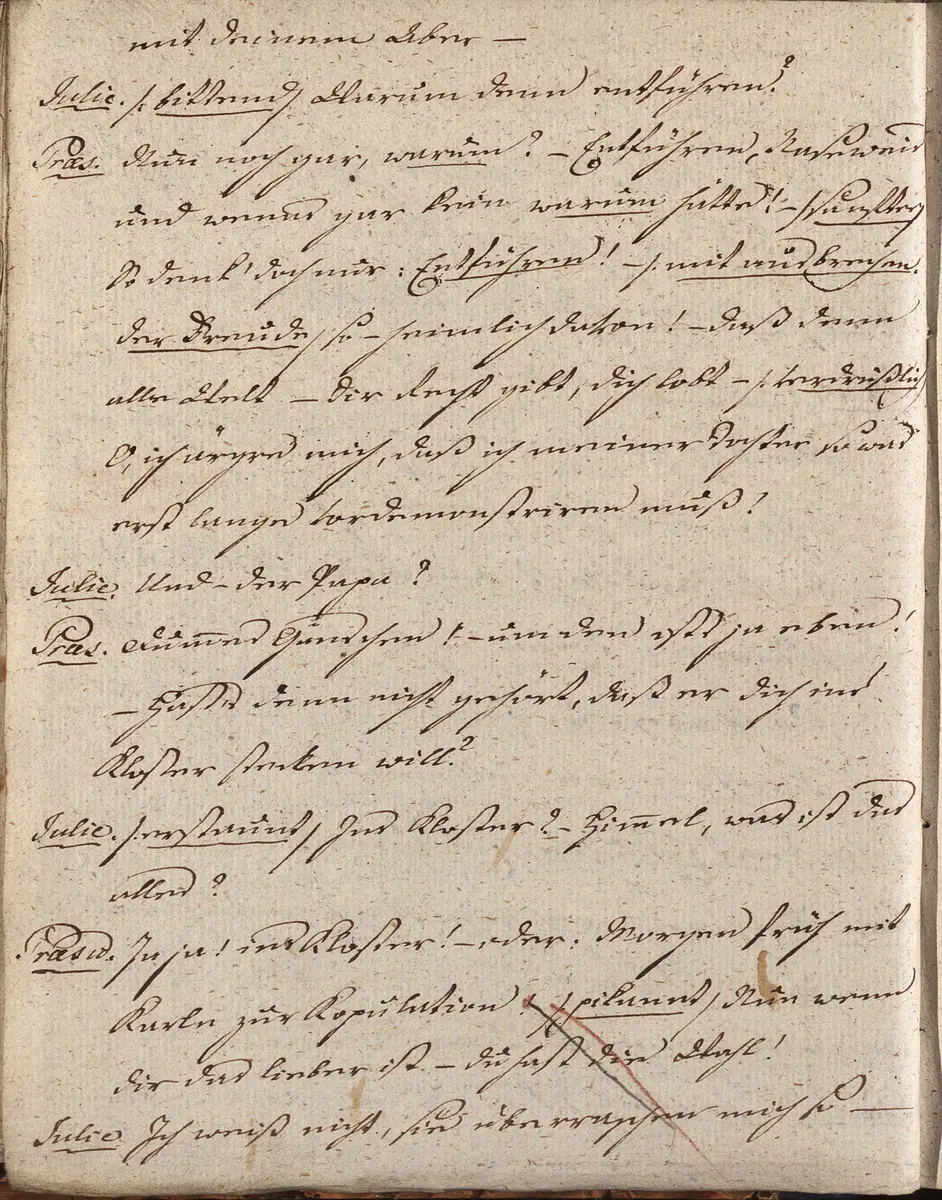 mit deinem Aber —
Julie. /: bittend / Warum denn entführen?
Præs. Nun noch gar, warum? – Entführen, Naseweis
und wenns gar kein warum hätte! – /: sanfter /
So denk' doch nur: Entführen! – /: mit ausbrechen-
der Freude / so – heimlich davon! – daß denn
alle Welt – dir Recht gibt, dich lobt – /: verdrüßlich /
O, ich ärgre mich, daß ich meiner Tochter so was
erst lange vordemonstriren muß!
Julie. Und – der Papa?
Præs. Dummes Gänschen! – um den ists ja eben!
– Hasts denn nicht gehört, daß er dich ins
Kloster stecken will?
Julie. /: erstaunt / Ins Kloster? – Himmel, was ist das
alles?
Præsid. Ja ja! ins Kloster! – oder: Morgen früh mit
Karln zur Kopulation! /: pikannt / Nun wenn
dir das lieber ist – du hast die Wahl!
Julie. Ich weiß nicht, sie überraschen mich so —